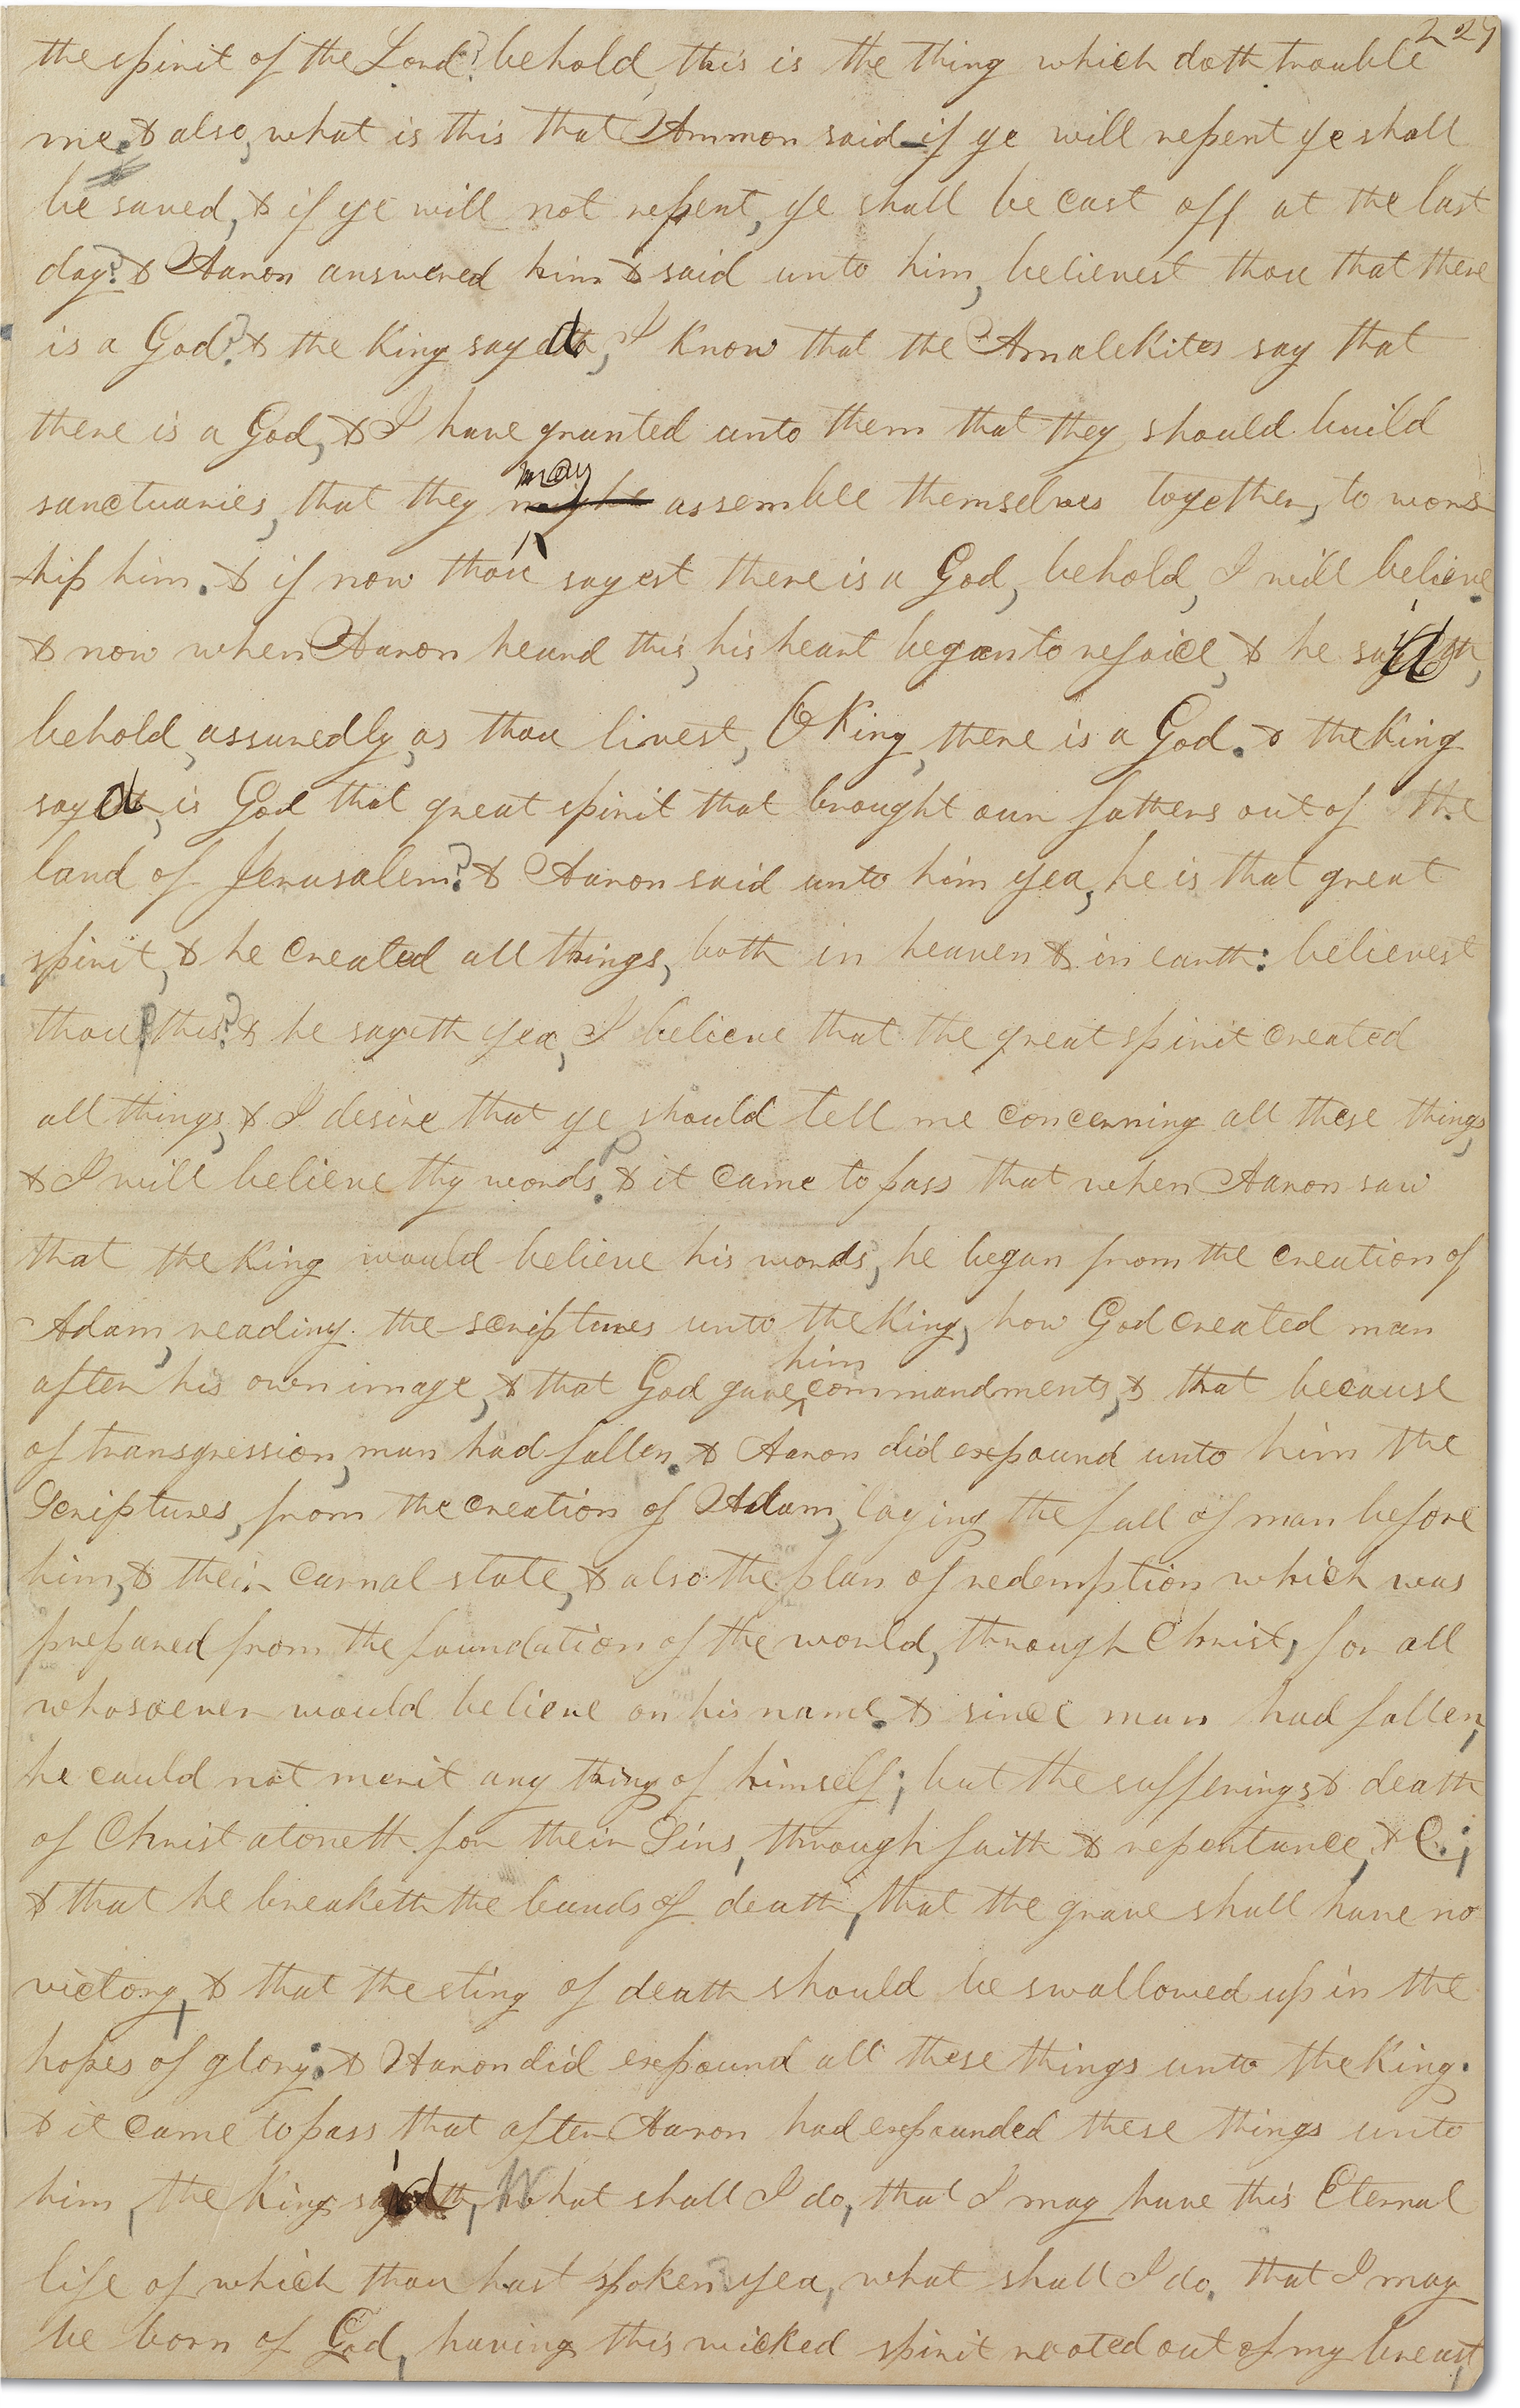 229
the spirit of the Lord? behold, this is the thing which doth trouble
me. & also, what is this that Ammon said—if ye will repent ye shall
be saved, & if ye will not repent, ye shall be cast off at the last
day? & Aaron answered him & said unto him, believest thou that there
is a God? & the King sayd, I know that the Amalekites say that
there is a God, & I have granted unto them that they should build
sanctuaries, that they may assemble themselves together, to wors-
hip him. & if now thou sayest there is a God, behold, I will believe.
& now when Aaron heard this, his heart began to rejoice, & he said,
behold, assuredly, as thou livest, O King, there is a God. & the King
sayd, is God that great spirit that brought our fathers out of the
land of Jerusalem? & Aaron said unto him yea, he is that great
spirit, & he created all things, both in heaven & in earth: believest
thou this? & he sayeth yea, I believe that the great spirit created
all things, & I desire that ye should tell me concerning all these things,
& I will believe thy words. & it came to pass that when Aaron saw
that the King would believe his words, he began from the creation of
Adam, reading the scriptures unto the King, how God created man
after his own image, & that God gave him commandments, & that because
of transgression, man had fallen. & Aaron did expound unto him the
Scriptures, from the creation of Adam, laying the fall of man before
him, & their carnal state, & also the plan of redemption which was
prepared from the foundation of the world, through Christ, for all
whosoever would believe on his name. & since man had fallen,
he could not merit any thing of himself; but the sufferings & death
of Christ atoneth for their Sins, through faith & repentance, & C.;
& that he breaketh the bands of death, that the grave shall have no
victory, & that the sting of death should be swallowed up in the
hopes of glory. & Aaron did expound all these things unto the King.
& it came to pass that after Aaron had expounded these things unto
him, the King said, What shall I do, that I may have this Eternal
life of which thou hast spoken? yea, what shall I do, that I may
be born of God, having this wicked spirit rooted out of my breast,